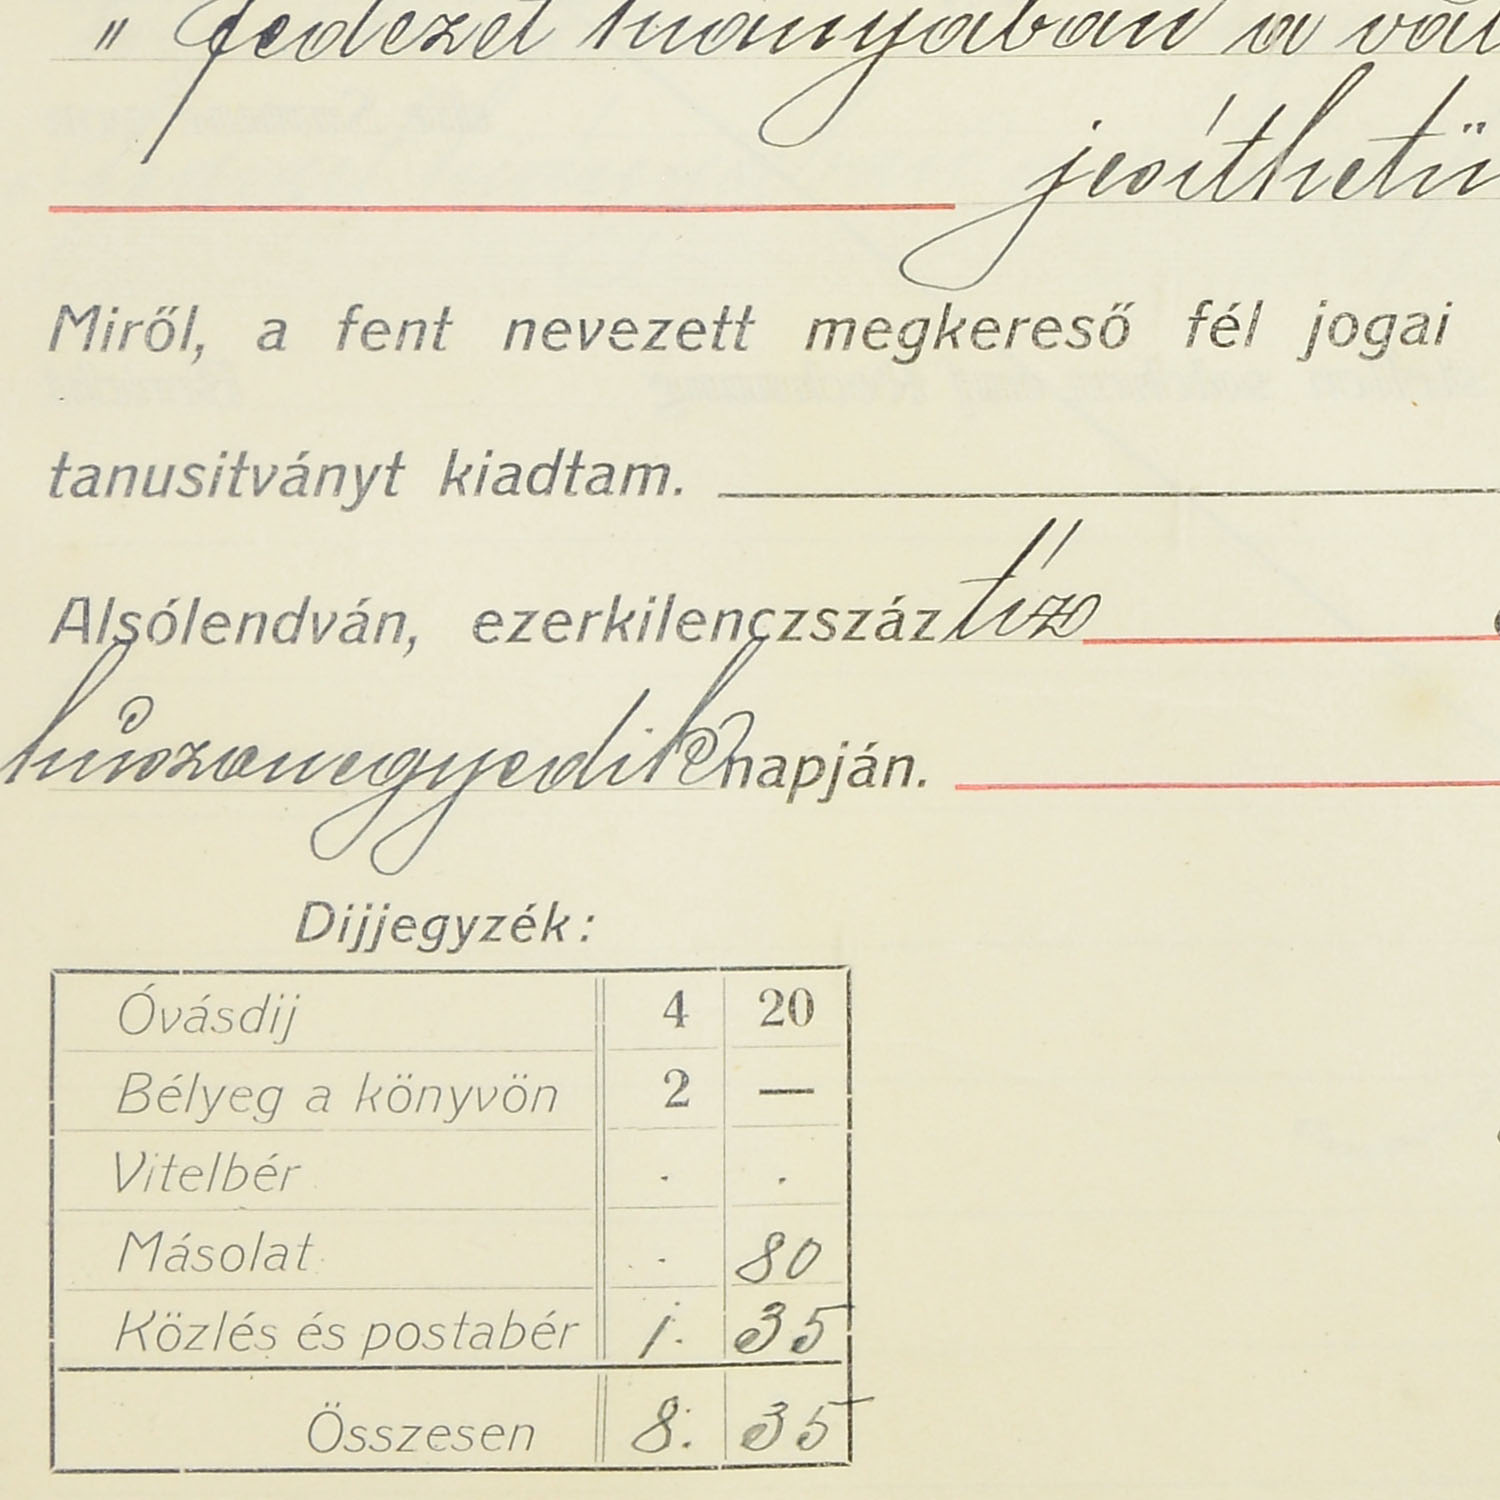 " fedezet hiányában a vál
jesíthetü
Miről, a fent nevezett megkereső fél jogai
tanusitványt kiadtam.
Alsólendván, ezerkilenczszáztíz
húszonegyedik napján.
Dijjegyzék:
Óvásdij 4 20
Bélyeg a könyvön 2 —
Vitelbér . .
Másolat . 80
Közlés és postabér 1. 35
Összesen 8. 35